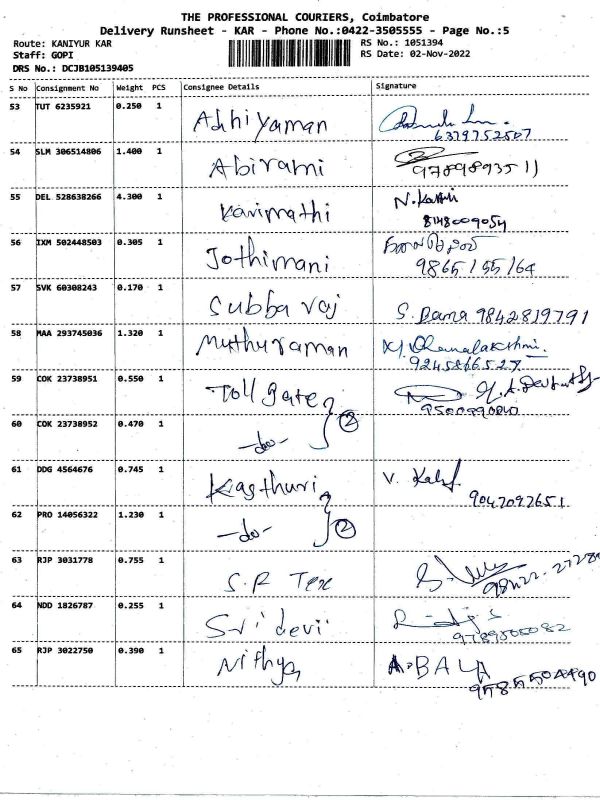 THE PROFESSIONAL COURIERS, Coimbatore
Delivery Runsheet - KAR - Phone No.:0422-3505555 - Page No.:5
Route: KANIYUR KAR
RS No.: 1051394
Staff: GOPI
RS Date: 02-Nov-2022
DRS No.: DCJB105139405
S No Consignment No Weight PCS Consignee Details Signature
53 TUT 6235921 0.250 1 Adhiyaman
6379752507
54 SLM 306514806 1.400 1 Abirami
9789893511
55 DEL 528638266 4.300 1 Kavimathi N.Kathi
8148009054
56 IXM 502448503 0.305 1 Jothimani
9865155164
57 SVK 60308243 0.170 1 Subba raj S. Dama 9842819791
58 MAA 293745036 1.320 1 Muthuraman
9245866527
59 COK 23738951 0.550 1 Toll gate
9500990040
60 COK 23738952 0.470 1 -do- 2
61 DDG 4564676 0.745 1 Kasthuri V.
9047097651
62 PRO 14056322 1.230 1 -do- 2
63 RJP 3031778 0.755 1 S.R Tex
98422-27289
64 NDD 1826787 0.255 1 Sridevi
9789505082
65 RJP 3022750 0.390 1 Nithya A.BALA
9585504490